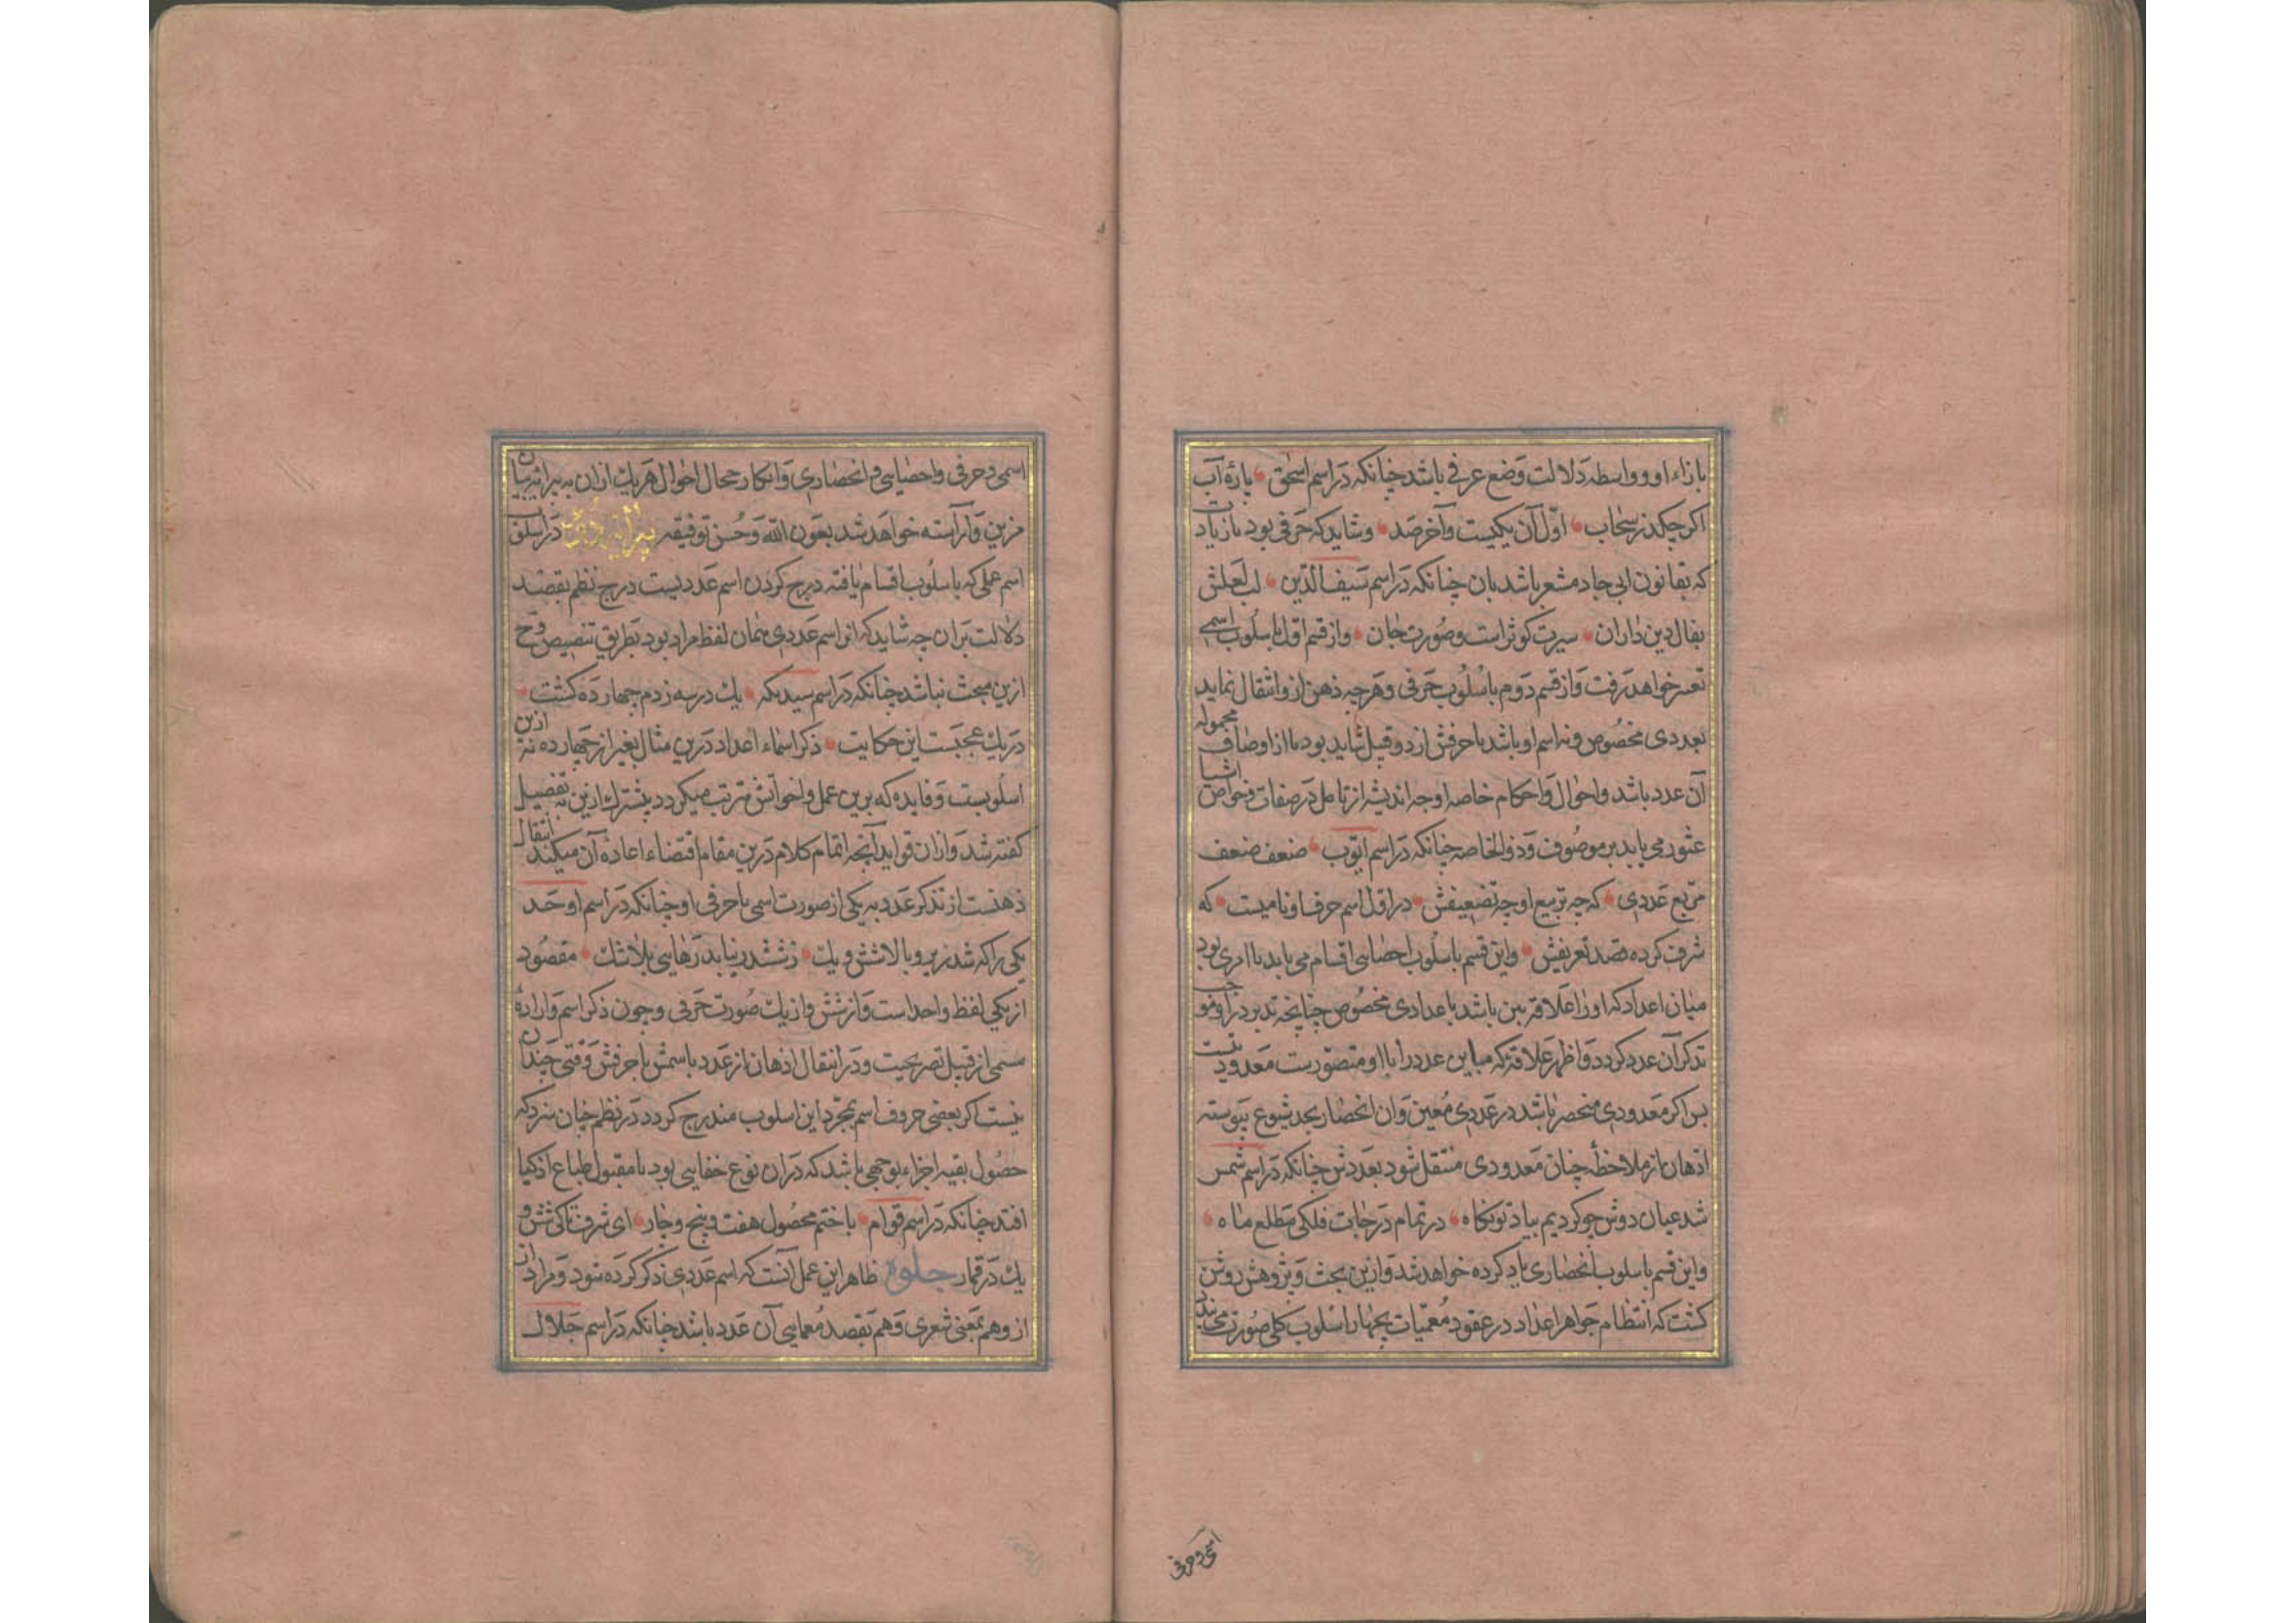 بازاء او و واسطه دلالت وضع عرفی باشد چنانکه در اسم اسحق پارهٔ آب
اکر چکد ز سحاب اوّل آن یکیست و آخر صد و شاید که حرفی بود بازیادت
که بقانون ابی جاد مشعر باشد بان چنانکه در اسم سیف الدین لب لعلش
بفال دین داران سیرت کوثر است و صورت جان و از قسم اول باسلوب اسمی
تعبیر خواهد رفت و از قسم دوم باسلوب حرفی و هرچه ذهن ازو انتقال نماید
بعددی مخصوص و نه اسم او باشد یا حرفش از دو قبیل شاید بود یا از اوصاف محموله
آن عدد باشد و احوال و احکام خاصه او چه اندیشه از تامل در صفات و خواص اشیا
عثور می یابد بر موصوف و ذو الخاصه چنانکه در اسم ایّوب ضعف ضعف
مربع عددی که چه تربیع او چه تضعیفش در اول اسم حرف او نامیست که
شرف کرده قصد تعریفش و این قسم باسلوب احصایی اقسام می یابد یا امری بود
میان اعداد که او را علاقه بین باشد باعدادی مخصوص چنانچه تدبر در او موجب
تذکر آن عدد کردد و اظهر علاقه که مباین عدد را با او متصورست معدودیتست
بس اکر معدودی منحصر باشد در عددی معین و ان انحصار بحد شیوع پیوسته
اذهان از ملاحظهٔ چنان معدودی منتقل شود بعددش چنانکه در اسم شمس
شد عیان دوش چو کردیم بیاد تو نکاه در تمام درجات فلکی مطلع ماه
و این قسم باسلوب انحصاری یاد کرده خواهد شد و ازین بحث و پژوهش روشن
کشت که انتظام جواهر اعداد در عقود معمیات بچهار اسلوب کلی صورت می بندد
اسمی و حرفی
اسمی و حرفی و احصایی و انحصاری و ابکار حجال احوال هریك ازان به پیرایه بیان
مزین و آراسته خواهد شد بعون الله و حسن توفیقه پیرایه در اسلوب
اسم عملی که باسلوب اقسام یافته درج کردن اسم عددیست در درج نظم بقصد
دلالت بران چه شاید که از اسم عددی همان لفظ مراد بود بطریق تنصیص و ح
ازین مبحث نباشد چنانکه در اسم سیدبکه یك در سه زدم چهارده کشت
در یك عجبست این حکایت ذکر اسماء اعداد درین مثال بغیر از چهارده نه ازین
اسلوبست و فایده که برین عمل و اخواتش مترتب میکردد پیشترك ازین به تفصیل
کفته شد و ازان فواید آنچه اتمام کلام درین مقام اقتضاء اعادهٔ آن میکند انتقال
ذهنست از تذکر عدد به یکی از صورت اسمی یا حرفی او چنانکه در اسم اوحد
یکی را که شد زیر و بالا شش و یك ز ششدر نیابد رهایی بلا شك مقصود
از یکی لفظ واحد است و از شش و از یك صورت حرفی و چون ذکر اسم و ارادهٔ
مسمی از قبیل تصریحیت و در انتقال اذهان از عدد باسمش یا حرفش وقتی چندان
نیست اکر بعضی حروف اسم بمجرد این اسلوب مندرج کردد در نظم چنان سزد که
حصول بقیه اجزاء بوجهی باشد که دران نوع خفایی بود تا مقبول طباع اذکیا
افتد چنانکه در اسم قوام باختم محصول هفت و پنج و چار ای شرف تا کی شش و
یك در قمار جلوه ظاهر این عمل آنست که اسم عددی ذکر کرده شود و مراد ازان
از و هم بمعنی شعری و هم بقصد معمایی آن عدد باشد چنانکه در اسم جلال